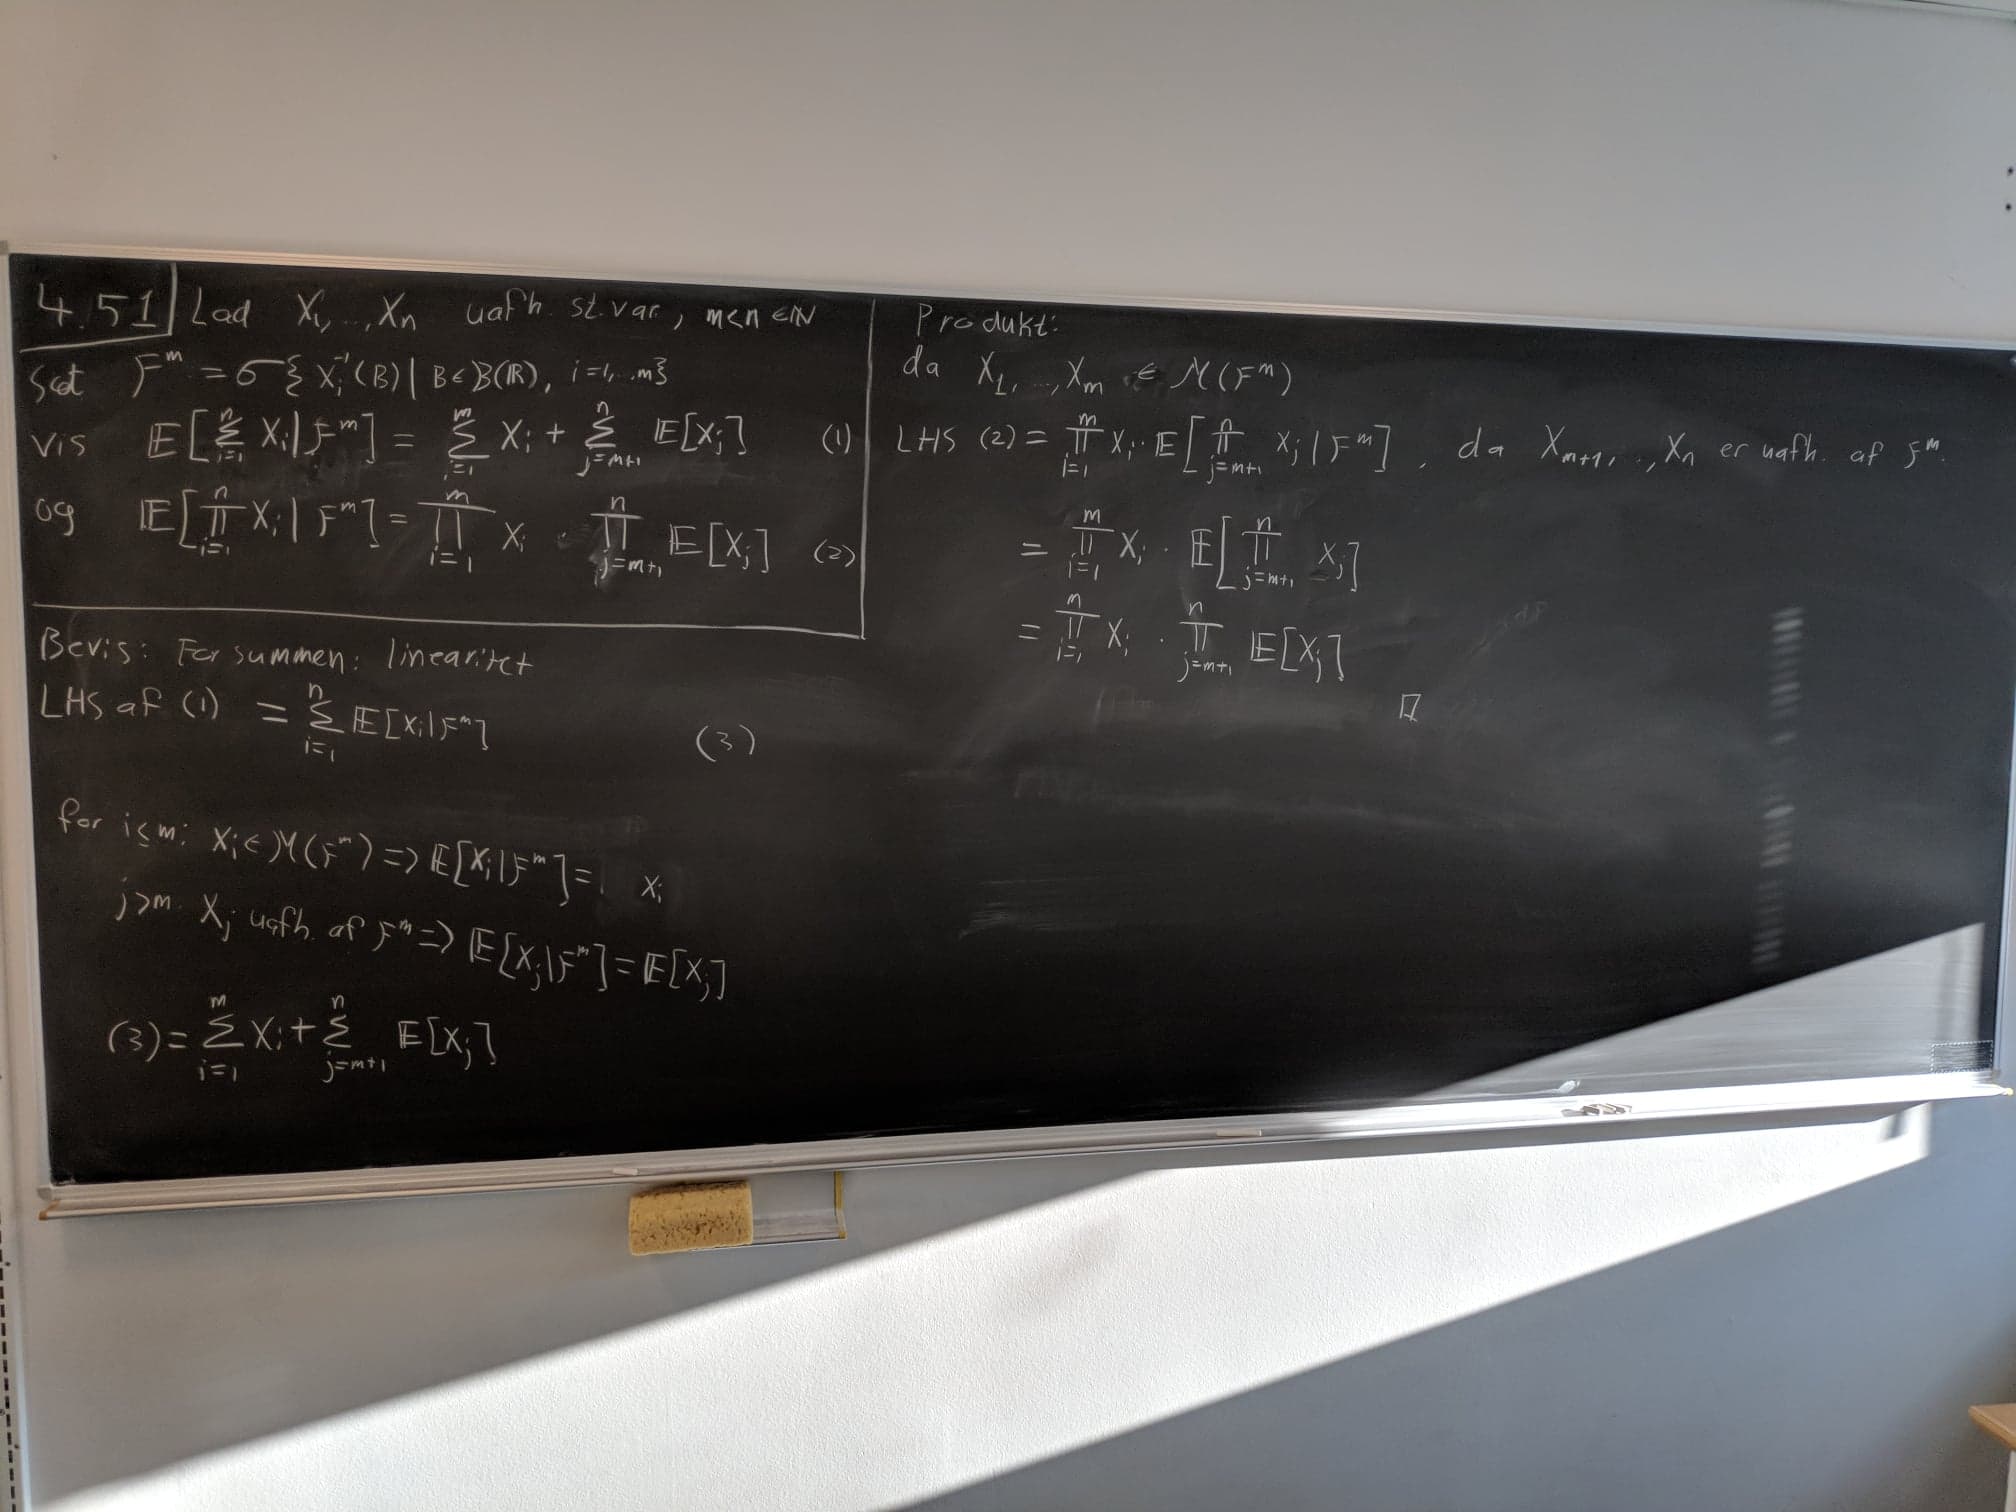 4.51 Lad X₁,..,Xₙ uafh. st.var, m<n ∈ℕ
Sæt Fᵐ = σ{Xᵢ⁻¹(B) | B∈B(ℝ), i=1,..m}
vis 𝔼[∑ᵢ₌₁ⁿ Xᵢ|Fᵐ] = ∑ᵢ₌₁ᵐ Xᵢ + ∑ⱼ₌ₘ₊₁ⁿ 𝔼[Xⱼ] (1)
og 𝔼[∏ᵢ₌₁ⁿ Xᵢ|Fᵐ] = ∏ᵢ₌₁ᵐ Xᵢ · ∏ⱼ₌ₘ₊₁ⁿ 𝔼[Xⱼ] (2)
Bevis: For summen: linearitet
LHS af (1) = ∑ᵢ₌₁ⁿ 𝔼[Xᵢ|Fᵐ] (3)
for i≤m: Xᵢ∈M(Fᵐ) => 𝔼[Xᵢ|Fᵐ] = Xᵢ
j>m. Xⱼ uafh. af Fᵐ => 𝔼[Xⱼ|Fᵐ] = 𝔼[Xⱼ]
(3) = ∑ᵢ₌₁ᵐ Xᵢ + ∑ⱼ₌ₘ₊₁ⁿ 𝔼[Xⱼ]
Produkt:
da X₁,..,Xₘ ∈ M(Fᵐ)
LHS (2) = ∏ᵢ₌₁ᵐ Xᵢ · 𝔼[∏ⱼ₌ₘ₊₁ⁿ Xⱼ|Fᵐ], da Xₘ₊₁,..,Xₙ er uafh. af Fᵐ.
= ∏ᵢ₌₁ᵐ Xᵢ · 𝔼[∏ⱼ₌ₘ₊₁ⁿ Xⱼ]
= ∏ᵢ₌₁ᵐ Xᵢ · ∏ⱼ₌ₘ₊₁ⁿ 𝔼[Xⱼ]
□